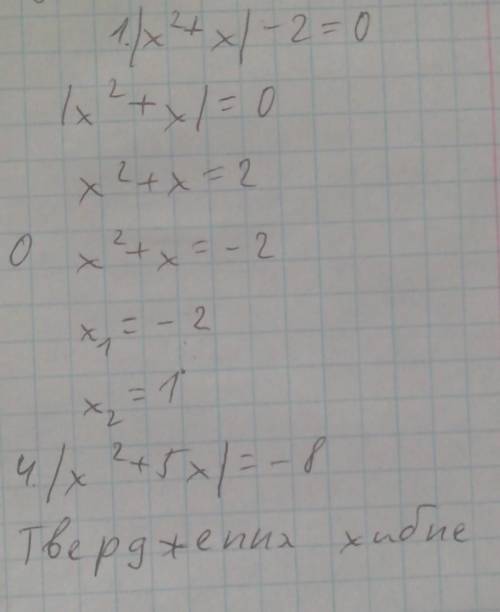 1. |x²+x| - 2 = 0
|x²+x| = 0
x²+x = 2
0 x²+x = -2
x₁ = -2
x₂ = 1
4. |x²+5x| = -8
Твердження хибне